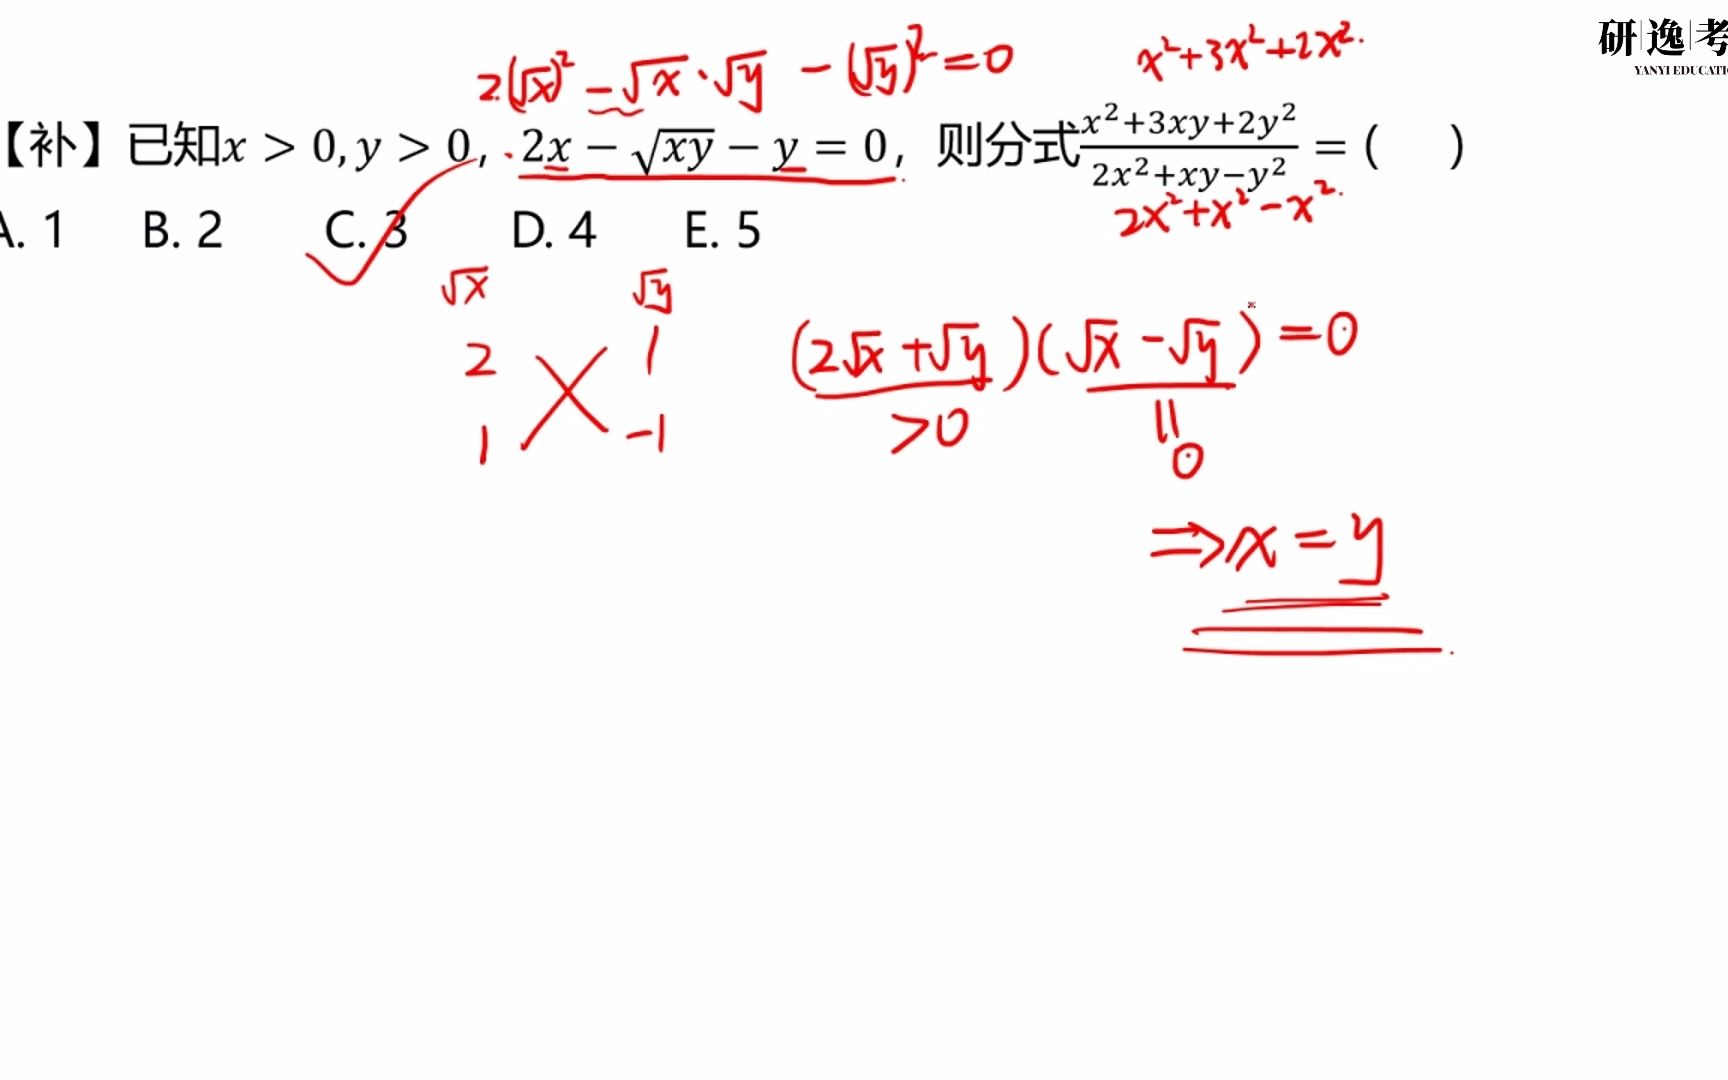 研逸考
YANYI EDUCATI
2(√x)² - √x·√y - (√y)² = 0
x²+3x²+2x².
【补】已知x > 0, y > 0, 2x − √xy − y = 0, 则分式(x²+3xy+2y²)/(2x²+xy−y²) = ( )
2x²+x²-x².
A. 1 B. 2 C. 3 D. 4 E. 5
√x √y
2 1
1 -1
(2√x+√y)(√x-√y)=0
>0
=
0
⇒x=y